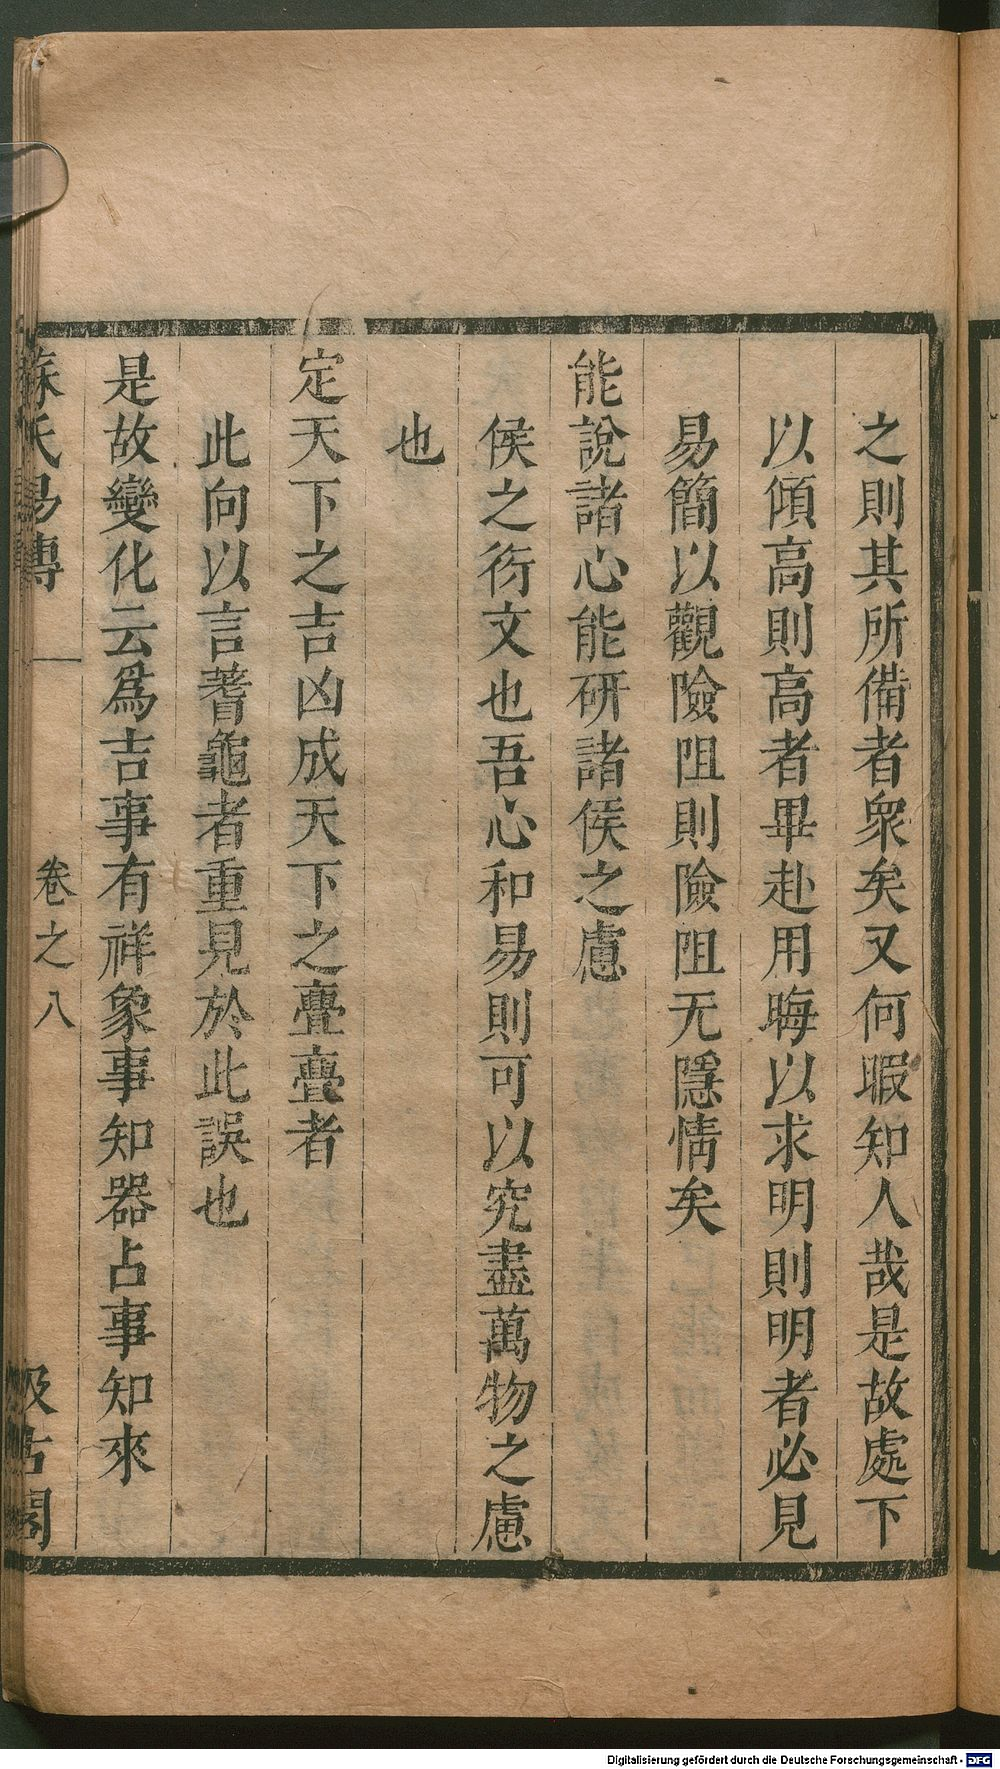 之則其所備者衆矣又何暇知人哉是故處下
以傾高則高者畢赴用晦以求明則明者必見
易簡以觀險阻則險阻无隱情矣
能說諸心能研諸侯之慮
侯之衍文也吾心和易則可以究盡萬物之慮
也
定天下之吉凶成天下之亹亹者
此向以言蓍龜者重見於此誤也
是故變化云爲吉事有祥象事知器占事知來
蘇氏易傳
卷之八
汲古閣
Digitalisierung gefördert durch die Deutsche Forschungsgemeinschaft - DFG